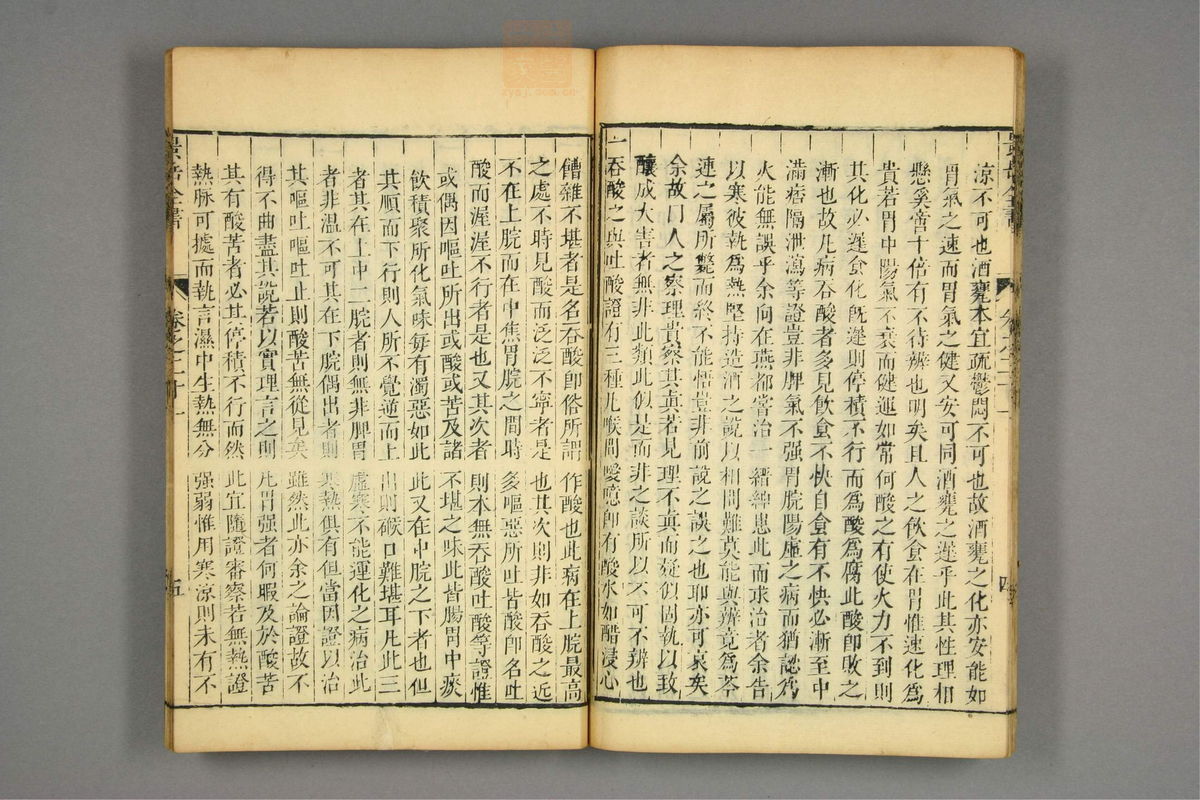 涼不可也酒甕本宜疏鬱悶不可也故酒甕之化亦安能如
胃氣之速而胃氣之健又安可同酒甕之遲乎此其性理相
懸奚啻十倍有不待辨也明矣且人之飲食在胃惟速化爲
貴若胃中陽氣不衰而健運如常何酸之有使火力不到則
其化必遲食化旣遲則停積不行而爲酸爲腐此酸卽敗之
漸也故凡病吞酸者多見飲食不快自食有不快必漸至中
滿痞隔泄瀉等證豈非脾氣不强胃脘陽虛之病而猶認爲
火能無誤乎余向在燕都嘗治一縉紳患此而求治者余告
以寒彼執爲熱堅持造酒之說以相問難莫能與辨竟爲芩
連之屬所斃而終不能悟豈非前說之誤之也耶亦可哀矣
余故曰人之察理貴察其眞若見理不眞而疑似固執以致
釀成大害者無非此類此似是而非之談所以不可不辨也
一吞酸之與吐酸證有三種凡喉間噯噫卽有酸水如醋浸心
嘈雜不堪者是名吞酸卽俗所謂作酸也此病在上脘最高
之處不時見酸而泛泛不寧者是也其次則非如吞酸之近
不在上脘而在中焦胃脘之間時多嘔惡所吐皆酸卽名吐
酸而渥渥不行者是也又其次者則本無吞酸吐酸等證惟
或偶因嘔吐所出或酸或苦及諸不堪之味此皆腸胃中痰
飲積聚所化氣味每有濁惡如此此又在中脘之下者也但
其順而下行則人所不覺逆而上出則喉口難堪耳凡此三
者其在上中二脘者則無非脾胃虛寒不能運化之病治此
者非溫不可其在下脘偶出者則寒熱俱有但當因證以治
其嘔吐嘔吐止則酸苦無從見矣雖然此亦余之論證故不
得不曲盡其說若以實理言之則凡胃强者何暇及於酸苦
其有酸苦者必其停積不行而然此宜隨證審察若無熱證
熱脉可據而執言濕中生熱無分强弱惟用寒凉則未有不
景岳全書
卷之二十一
四
景岳全書
卷之二十一
五
zysj.com.cn